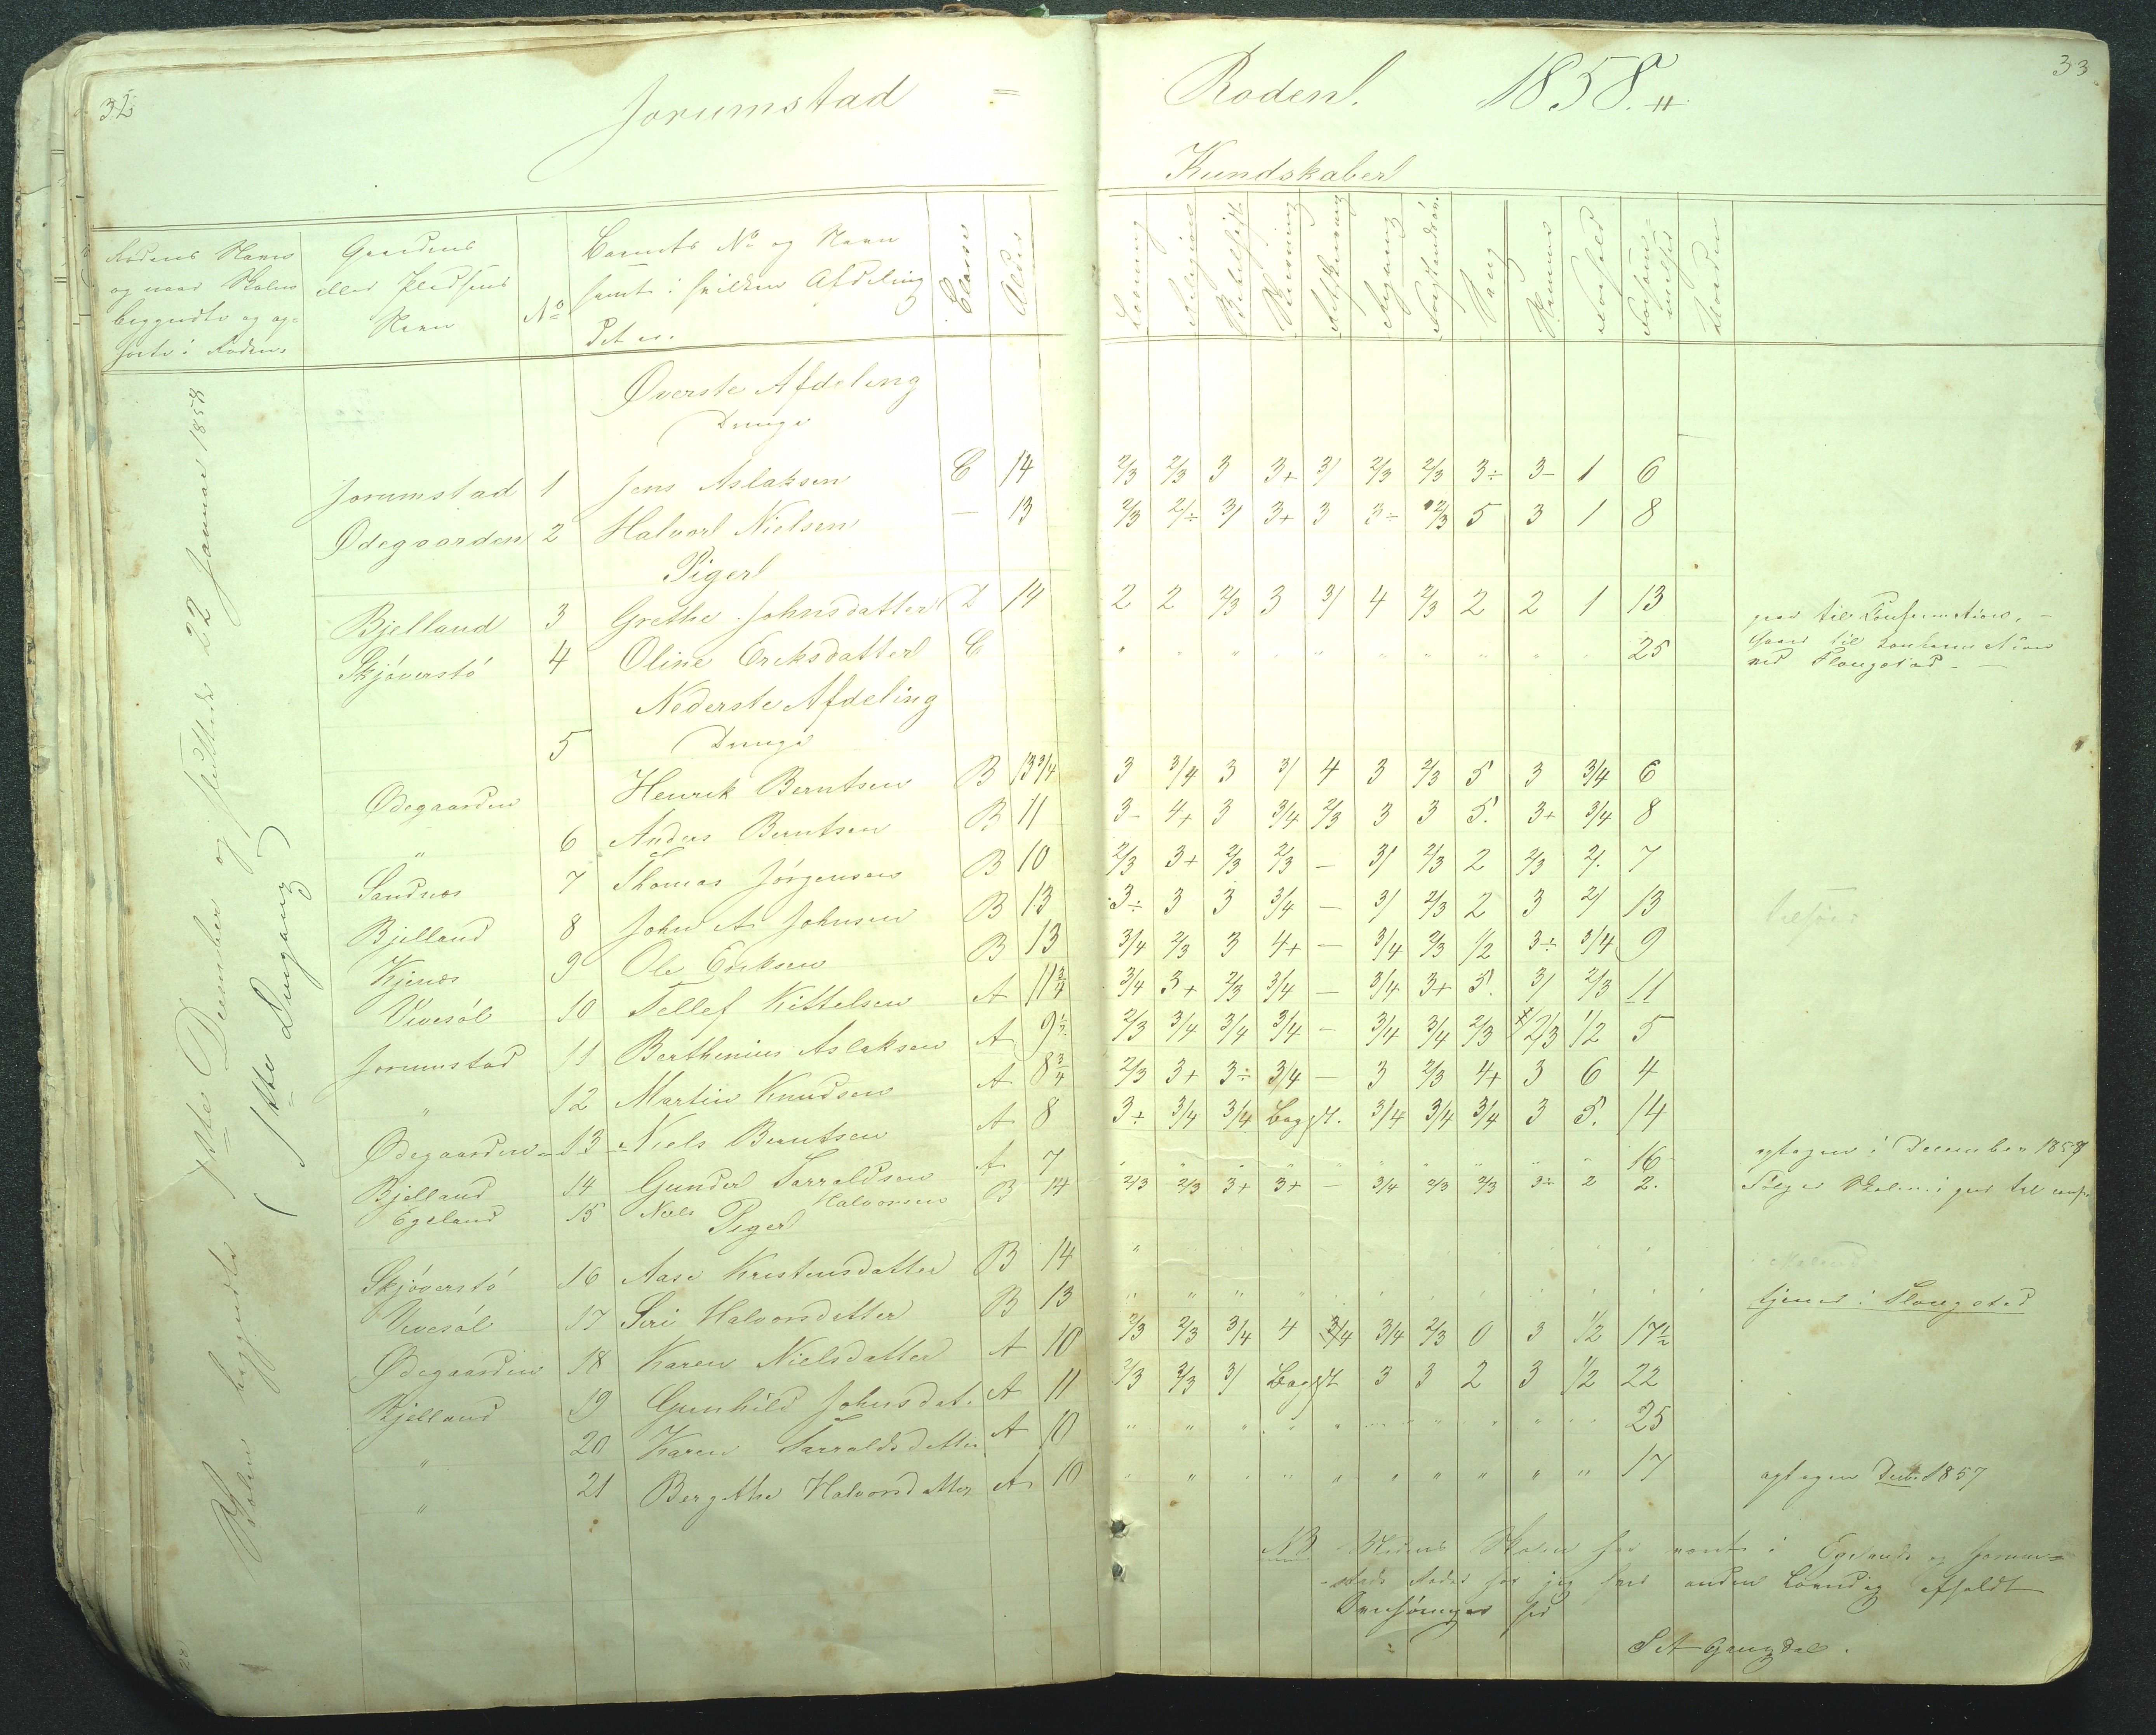 32
Jorumstad =
Roden. 1858.
33
Kundskaber
Rodens Navn
og naar Skolen
begyndte og op=
hørte i Roden.
Gaardens
eller Pladsens
Navn
No
Barnets No og Navn
samt i hvilken Afdeling
det er.
Classe
Alder
Læsning
Religion
Bibelhist
Skrivning
Retskrivning
Regning
Forstandsøv.
Sang
Nemme
Forhold
Forsøm=
melser
Skolen begyndte 17de December og sluttede 22 Januar 1858
(1ste Omgang)
Øverste Afdeling
Drenge
Jorumstad 1 Jens Aslaksen C 14 2/3 2/3 3 3+ 3/ 2/3 2/3 3÷ 3- 1 6
Ødegaarden 2 Halvor Nielsen — 13 2/3 2/÷ 3/ 3+ 3 3÷ 2/3 5 3 1 8
Piger
Bjelland 3 Grethe Johnsdatter D 14 2 2 2/3 3 3/ 4 2/3 2 2 1 13 gaar til Confirmation. —
Skjøverstø 4 Oline Eriksdatter C " " " " " " " " " " 25 gaar til Confirmation
ved Flougstad —
Nederste Afdeling
5 Drenge
Ødegaarden Henrik Berntsen B 13 3/4 3 3/4 3 3/ 4 3 2/3 5 3 3/4 6
" 6 Anders Berntsen B 11 3- 4+ 3 3/4 2/3 3 3 5. 3+ 3/4 8
Sandnæs 7 Thomas Jørgensen B 10 2/3 3+ 2/3 2/3 — 3/ 2/3 2 2/3 2/. 7
Bjelland 8 John A Johnsen B 13 3÷ 3 3 3/4 — 3/ 2/3 2 3 2/ 13
Kjenes 9 Ole Eriksen B 13 3/4 2/3 3 4+ — 3/4 2/3 1/2 3÷ 3/4 9
Vivesøl 10 Tellef Kittelsen A 11 3/4 3/4 3+ 2/3 3/4 — 3/4 3+ 5. 3/ 2/3 11
Jorumstad 11 Berthinius Aslaksen A 9 1/2 2/3 3/4 3/4 3/4 — 3/4 3/4 2/3 2/3 1/2 5
" 12 Martin Knudsen A 8 3/4 2/3 3+ 3÷ 3/4 — 3 2/3 4+ 3 6 4
Ødegaarden 13 Niels Berntsen A 8 3÷ 3/4 3/4 Begyt. 3/4 3/4 3/4 3 5. 14
Bjelland 14 Gunder Tarraldsen A 7 " " " " " " " " " 16 optagen i December 1857
Egeland 15 Niels Halvorsen B 14 2/3 2/3 3+ 3+ — 3/4 2/3 2/3 3÷ 2 2.
Piger
Skjøverstø 16 Aase Kristensdatter B 14
Vivesøl 17 Siri Halvorsdatter B 13 tjener i Flougstad
Ødegaarden 18 Karen Nielsdatter A 10 2/3 2/3 3/4 4 3/4 3/4 2/3 0 3 1/2 17 1/2
Bjelland 19 Gunhild Johnsdat. A 11 2/3 2/3 3/ Begyt 3 3 2 3 1/2 22
" 20 Karen Tarraldsdatter A 10 " " " " " " " " " " 25
" 21 Bergithe Halvorsdatter A 10 " " " " " " " " " " 17 optagen Decb. 1857
NB Medens Skolen har været i Egelands og Jorum=
stads Roder har jeg hver anden Løverdag afholdt